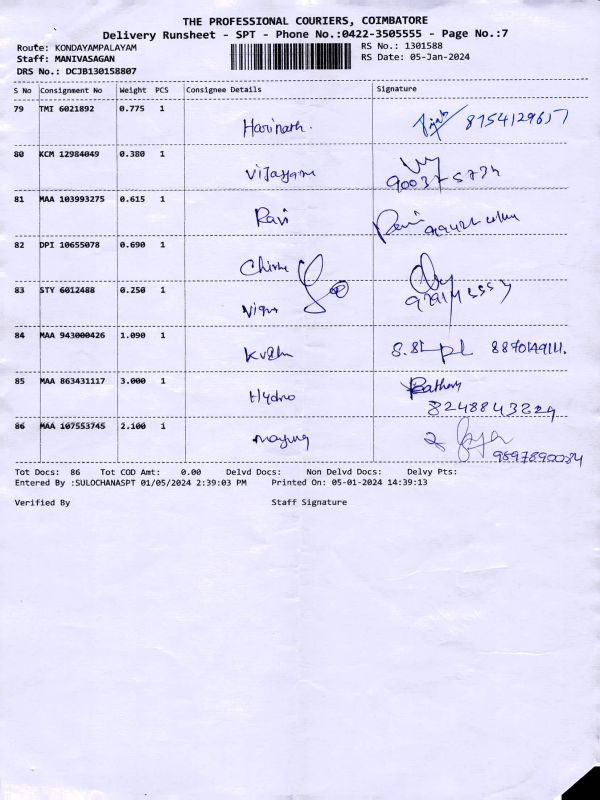 THE PROFESSIONAL COURIERS, COIMBATORE
Delivery Runsheet - SPT - Phone No.:0422-3505555 - Page No.:7
Route: KONDAYAMPALAYAM
RS No.: 1301588
Staff: MANIVASAGAN
RS Date: 05-Jan-2024
DRS No.: DCJB130158807
S No Consignment No Weight PCS Consignee Details Signature
79 TMI 6021892 0.775 1
Harinath. 8754129657
80 KCM 12984049 0.380 1
81 MAA 103993275 0.615 1
Ravi
82 DPI 10655078 0.690 1
83 STY 6012488 0.250 1
84 MAA 943000426 1.090 1
85 MAA 863431117 3.000 1
Hydro
8248843229
86 MAA 107553745 2.100 1
9597890084
Tot Docs: 86 Tot COD Amt: 0.00 Delvd Docs: Non Delvd Docs: Delvy Pts:
Entered By :SULOCHANASPT 01/05/2024 2:39:03 PM Printed On: 05-01-2024 14:39:13
Verified By Staff Signature